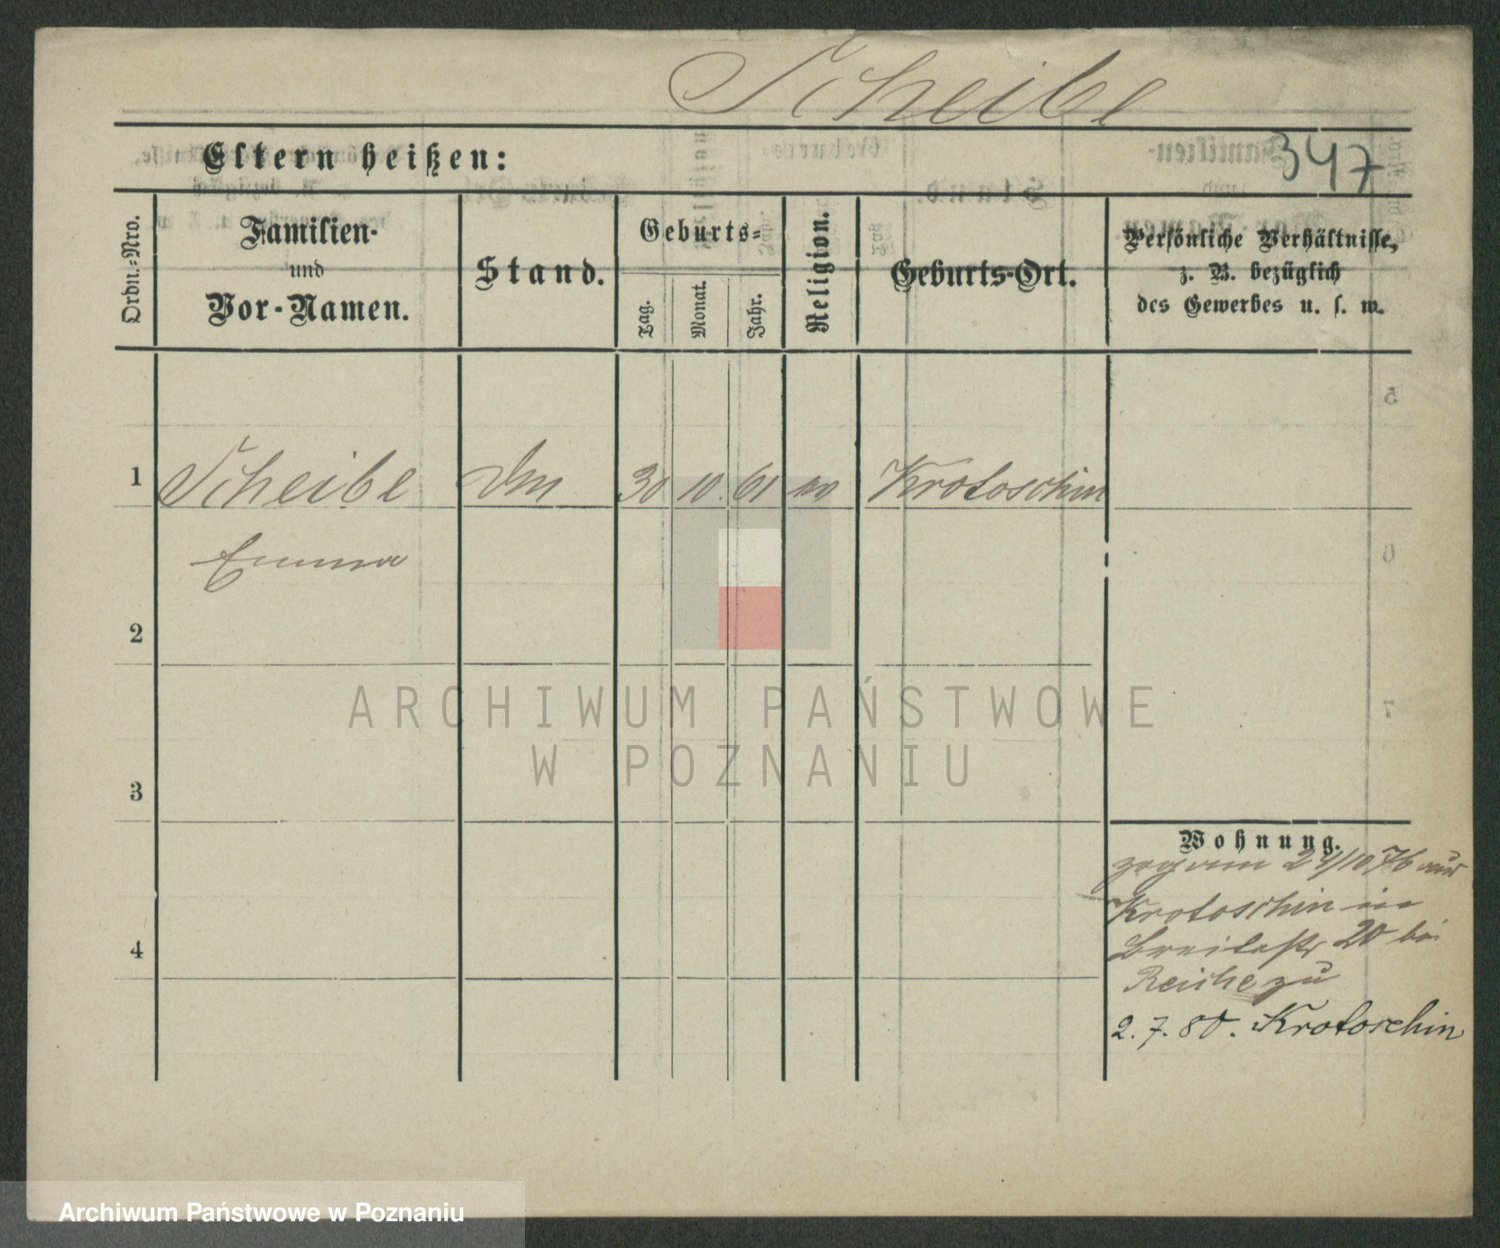 Scheibe
Eltern heißen:
347
Ordn.-Nro.
Familien-
und
Vor-Namen.
Stand.
Geburts-
Tag.
Monat.
Jahr.
Religion.
Geburts-Ort.
Persönliche Verhältnisse,
z. B. bezüglich
des Gewerbes u. s. w.
1 Scheibe 30 10 61 ev Krotoschin
Emma
2
3
4
Wohnung.
zog am 24/10 76 aus
Krotoschin in
Breitestr 20 bei
Reiche zu
2. 7. 80. Krotoschin
ARCHIWUM PAŃSTWOWE
W POZNANIU
Archiwum Państwowe w Poznaniu